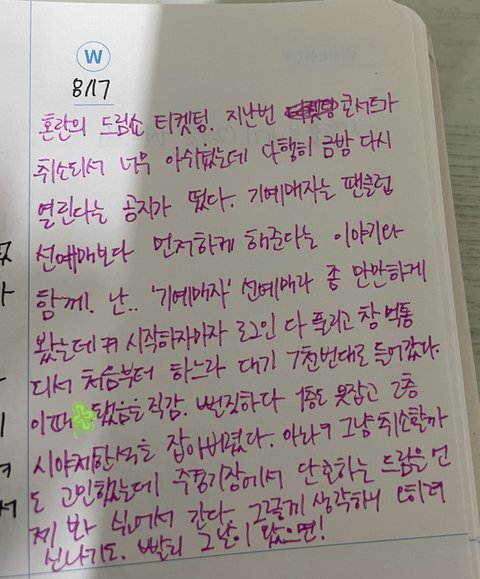 W
8/17
혼란의 드림쇼 티켓팅. 지난번 콘서트가
취소되서 너무 아쉬웠는데 다행히 금방 다시
열린다는 공지가 떴다. 기예매자는 팬클럽
선예매보다 먼저하게 해준다는 이야기와
함께. 난.. '기예매자' 선예매라 좀 만만하게
봤는데 ㅠ 시작하자마자 로그인 다 풀리고 창 먹통
되서 처음부터 하느라 대기 7천번대로 들어갔다.
이때 망했음을 직감. 뻔짓하다 1층도 못잡고 2층
시야제한석을 잡아버렸다. 아놔 그냥 취소할까
도 고민했는데 주경기장에서 단출하는 드림을 언
제 봐 싶어서 간다. 그렇게 생각하니 오히려
신나기도. 빨리 그날이 왔으면!